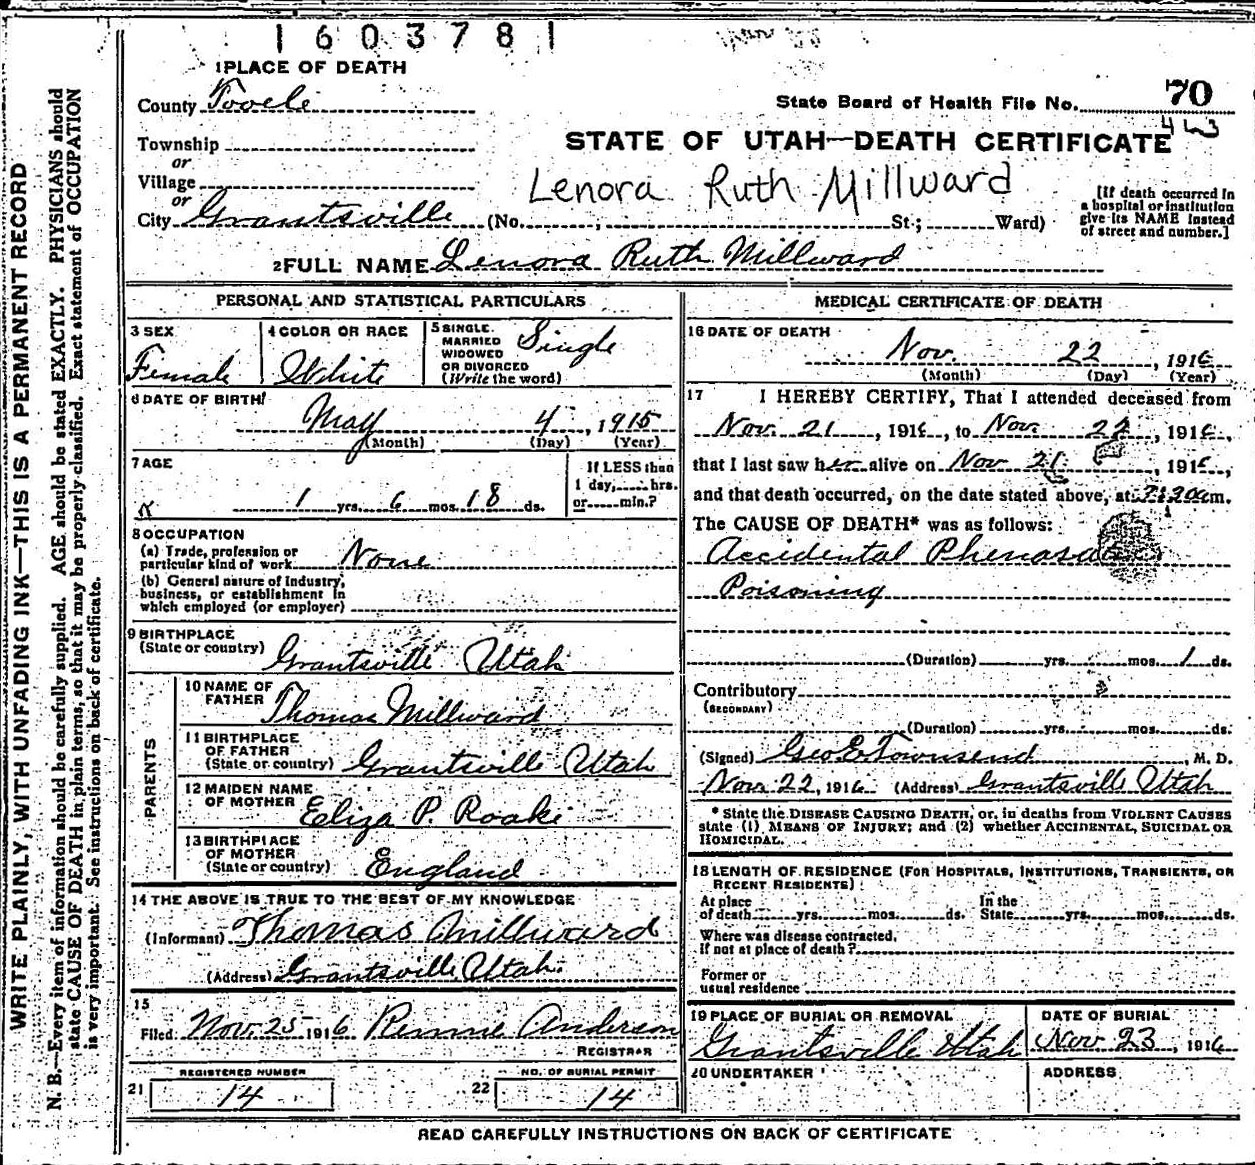 1603781
1 PLACE OF DEATH
County Tooele
State Board of Health File No. 70
443
Township
or
Village
or
City Grantsville (No. ; St.; Ward)
STATE OF UTAH—DEATH CERTIFICATE
Lenora Ruth Millward
[If death occurred in
a hospital or institution
give its NAME instead
of street and number.]
2 FULL NAME Lenora Ruth Millward
PERSONAL AND STATISTICAL PARTICULARS
3 SEX
Female
4 COLOR OR RACE
White
5 SINGLE
MARRIED
WIDOWED
OR DIVORCED
(Write the word)
Single
6 DATE OF BIRTH
May 4, 1915
(Month) (Day) (Year)
7 AGE
1 yrs. 6 mos. 18 ds.
If LESS than
1 day, hrs.
or min.?
8 OCCUPATION
(a) Trade, profession or
particular kind of work None
(b) General nature of industry,
business, or establishment in
which employed (or employer)
9 BIRTHPLACE
(State or country) Grantsville Utah
PARENTS
10 NAME OF
FATHER Thomas Millward
11 BIRTHPLACE
OF FATHER
(State or country) Grantsville Utah
12 MAIDEN NAME
OF MOTHER Eliza P.
13 BIRTHPLACE
OF MOTHER
(State or country) England
14 THE ABOVE IS TRUE TO THE BEST OF MY KNOWLEDGE
(Informant) Thomas Millward
(Address) Grantsville Utah.
15
Filed Nov. 25 1916 Anderson
REGISTRAR
REGISTERED NUMBER
21 14
NO. OF BURIAL PERMIT
22 14
MEDICAL CERTIFICATE OF DEATH
16 DATE OF DEATH
Nov. 22, 1916
(Month) (Day) (Year)
17 I HEREBY CERTIFY, That I attended deceased from
Nov. 21, 1916, to Nov. 22, 1916,
that I last saw her alive on Nov 21, 1916,
and that death occurred, on the date stated above, at m.
The CAUSE OF DEATH* was as follows:
Accidental
Poisoning
(Duration) yrs. mos. 1 ds.
Contributory
(SECONDARY)
(Duration) yrs. mos. ds.
(Signed) Geo E Townsend, M. D.
Nov 22, 1916 (Address) Grantsville Utah
* State the DISEASE CAUSING DEATH, or, in deaths from VIOLENT CAUSES
state (1) MEANS OF INJURY; and (2) whether ACCIDENTAL, SUICIDAL OR
HOMICIDAL.
18 LENGTH OF RESIDENCE (FOR HOSPITALS, INSTITUTIONS, TRANSIENTS, OR
RECENT RESIDENTS)
At place
of death yrs. mos. ds.
In the
State yrs. mos. ds.
Where was disease contracted,
If not at place of death?
Former or
usual residence
19 PLACE OF BURIAL OR REMOVAL
Grantsville Utah
DATE OF BURIAL
Nov 23, 1916
20 UNDERTAKER
ADDRESS
READ CAREFULLY INSTRUCTIONS ON BACK OF CERTIFICATE
WRITE PLAINLY, WITH UNFADING INK—THIS IS A PERMANENT RECORD
N. B.—Every item of information should be carefully supplied. AGE should be stated EXACTLY. PHYSICIANS should
state CAUSE OF DEATH in plain terms, so that it may be properly classified. Exact statement of OCCUPATION
is very important. See instructions on back of certificate.